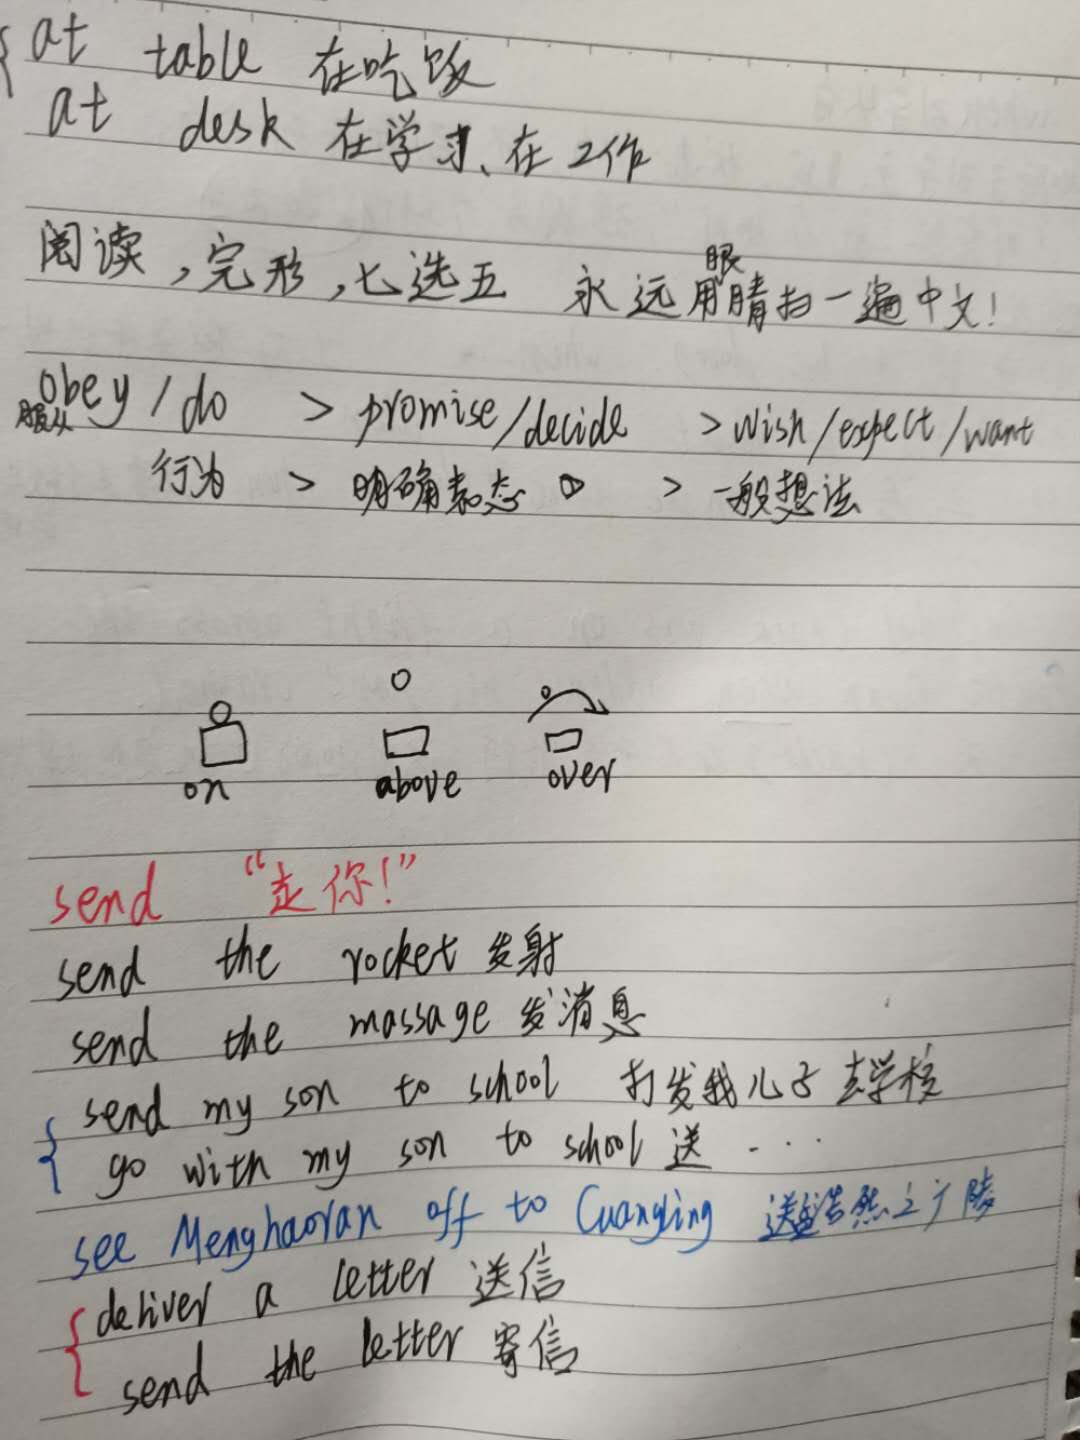 at table 在吃饭
at desk 在学习、在工作
阅读,完形,七选五 永远用眼睛扫一遍中文!
obey/do > promise/decide > wish/expect/want
服从
行为 > 明确表态 > 一般想法
on above over
send “走你!”
send the rocket 发射
send the massage 发消息
send my son to school 打发我儿子去学校
go with my son to school 送...
see Menghaoran off to Cuangling 送孟浩然之广陵
deliver a letter 送信
send the letter 寄信